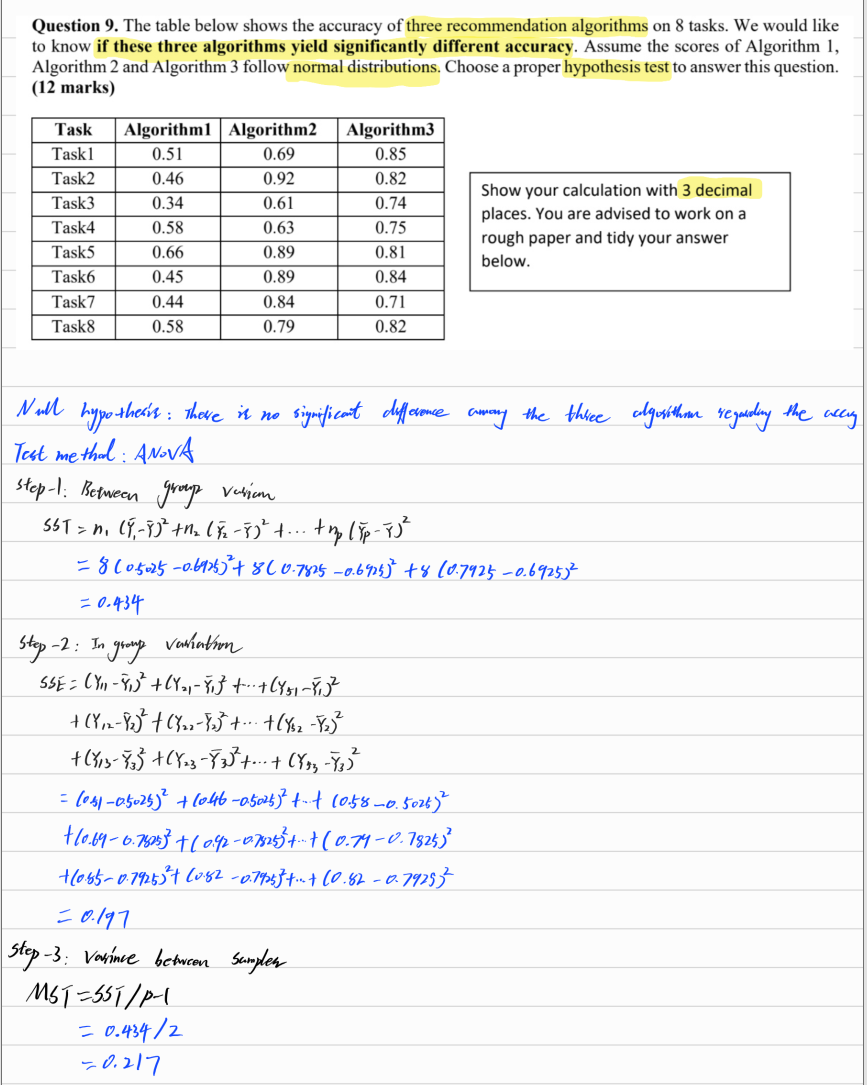 Question 9. The table below shows the accuracy of three recommendation algorithms on 8 tasks. We would like
to know if these three algorithms yield significantly different accuracy. Assume the scores of Algorithm 1,
Algorithm 2 and Algorithm 3 follow normal distributions. Choose a proper hypothesis test to answer this question.
(12 marks)
Task Algorithm1 Algorithm2 Algorithm3
Task1 0.51 0.69 0.85
Task2 0.46 0.92 0.82
Task3 0.34 0.61 0.74
Task4 0.58 0.63 0.75
Task5 0.66 0.89 0.81
Task6 0.45 0.89 0.84
Task7 0.44 0.84 0.71
Task8 0.58 0.79 0.82
Show your calculation with 3 decimal
places. You are advised to work on a
rough paper and tidy your answer
below.
Null hypothesis: There is no significant difference among the three algorithm regarding the
Test method: ANOVA
Step-1: Between group
SST = n₁ (Ȳ₁-Ȳ)² + n₂ (Ȳ₂-Ȳ)² + ... + np (Ȳp-Ȳ)²
= 8 (0.5025 -0.6925)² + 8 (0.7825 -0.6925)² + 8 (0.7925 -0.6925)²
= 0.434
Step-2: In group variation
SSE = (Y₁₁ -Ȳ₁)² + (Y₂₁-Ȳ₁)² + ... + (Y₅₁ -Ȳ₁)²
+ (Y₁₂-Ȳ₂)² + (Y₂₂-Ȳ₂)² + ... + (Y₅₂ -Ȳ₂)²
+ (Y₁₃-Ȳ₃)² + (Y₂₃ -Ȳ₃)² + ... + (Y₅₃ -Ȳ₃)²
= (0.51-0.5025)² + (0.46 -0.5025)² + ... + (0.58 -0.5025)²
+ (0.69- 0.7825)² + (0.92 -0.7825)² + ... + (0.79 -0.7825)²
+ (0.85- 0.7925)² + (0.82 -0.7925)² + ... + (0.82 - 0.7925)²
= 0.197
Step-3: between samples
MST = SST/p-1
= 0.434/2
= 0.217